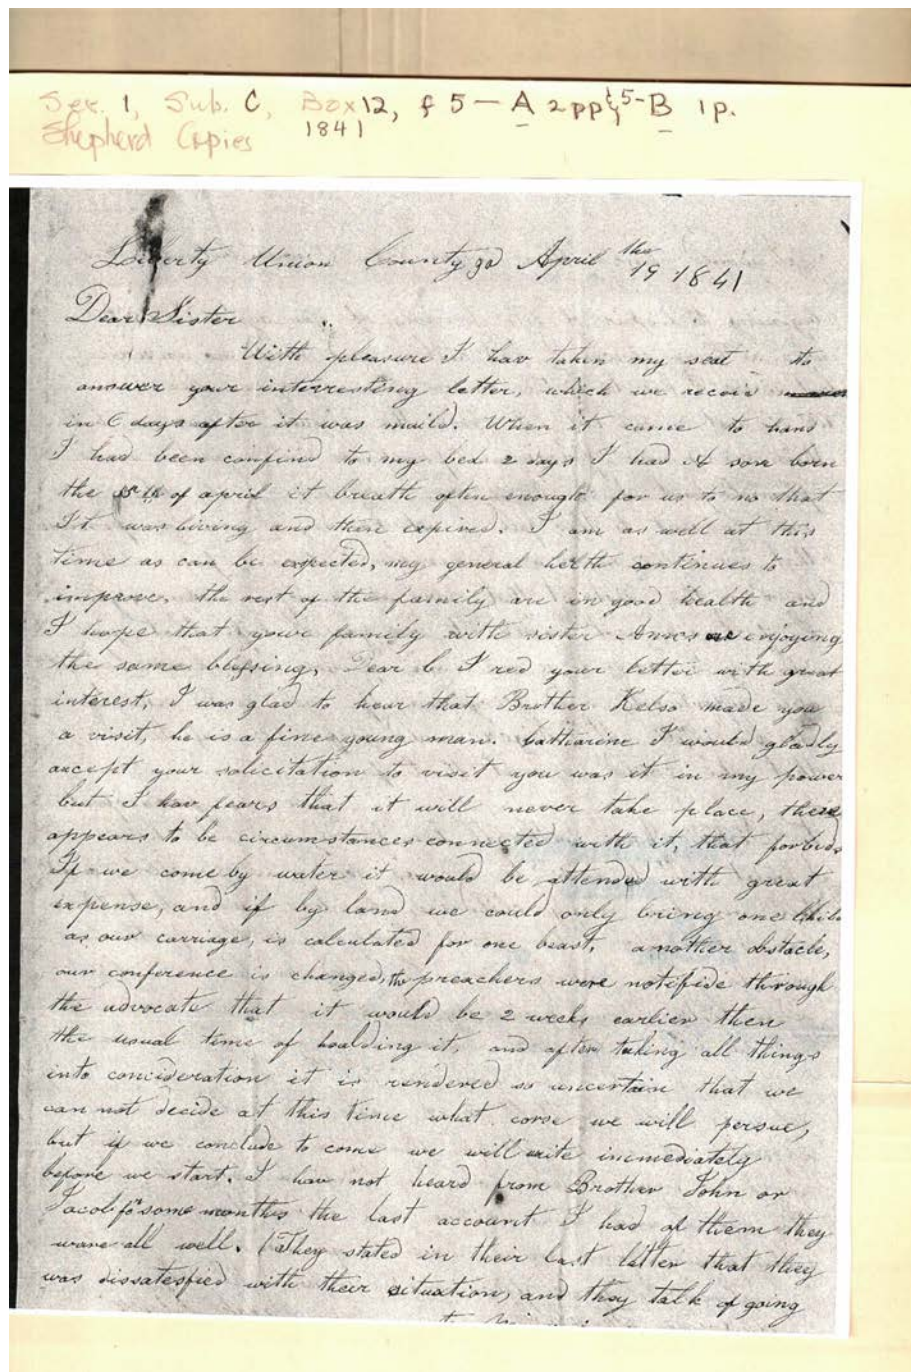 Ser. 1, Sub. C, Box 12, f 5 — A 2pp & 5-B 1p.
Shepherd Copies 1841
Liberty Union County April 19 1841
Dear Sister
With pleasure I hav taken my seat to
answer your interresting letter, which we receiv
in 6 days after it was maild. When it came to hand
I had been confind to my bed 2 days I had A son born
the of april it breath often enough for us to no that
It was living and then expired. I am as well at this
time as can be expected, my general helth continues to
improve. the rest of the family are in good health and
I hope that youre family with sister enjoying
the same blessing, Dear C I red your letter with great
interest, I was glad to hear that Brother Kelso made you
a visit, he is a fine young man. Catharine I would gladly
except your solicitation to visit you was it in my power
but I hav fears that it will never take place, there
appears to be circumstances connected with it, that forbids
If we come by water it would be attended with great
expense, and if by land we could only bring one Child
as our carriage, is calculated for one beast, another obstacle,
our conference is changed, the preachers were notifide through
the advocate that it would be 2 weeks earlier then
the usual time of houlding it, and after taking all things
into concideration it is rendered so uncertain that we
can not decide at this time what corse we will persue,
but if we conclude to come we will write immediately
before we start. I hav not heard from Brother John or
Jacob for some months the last account I had of them they
ware all well. They stated in their last letter that they
was dissatesfied with their situation, and they talk of going